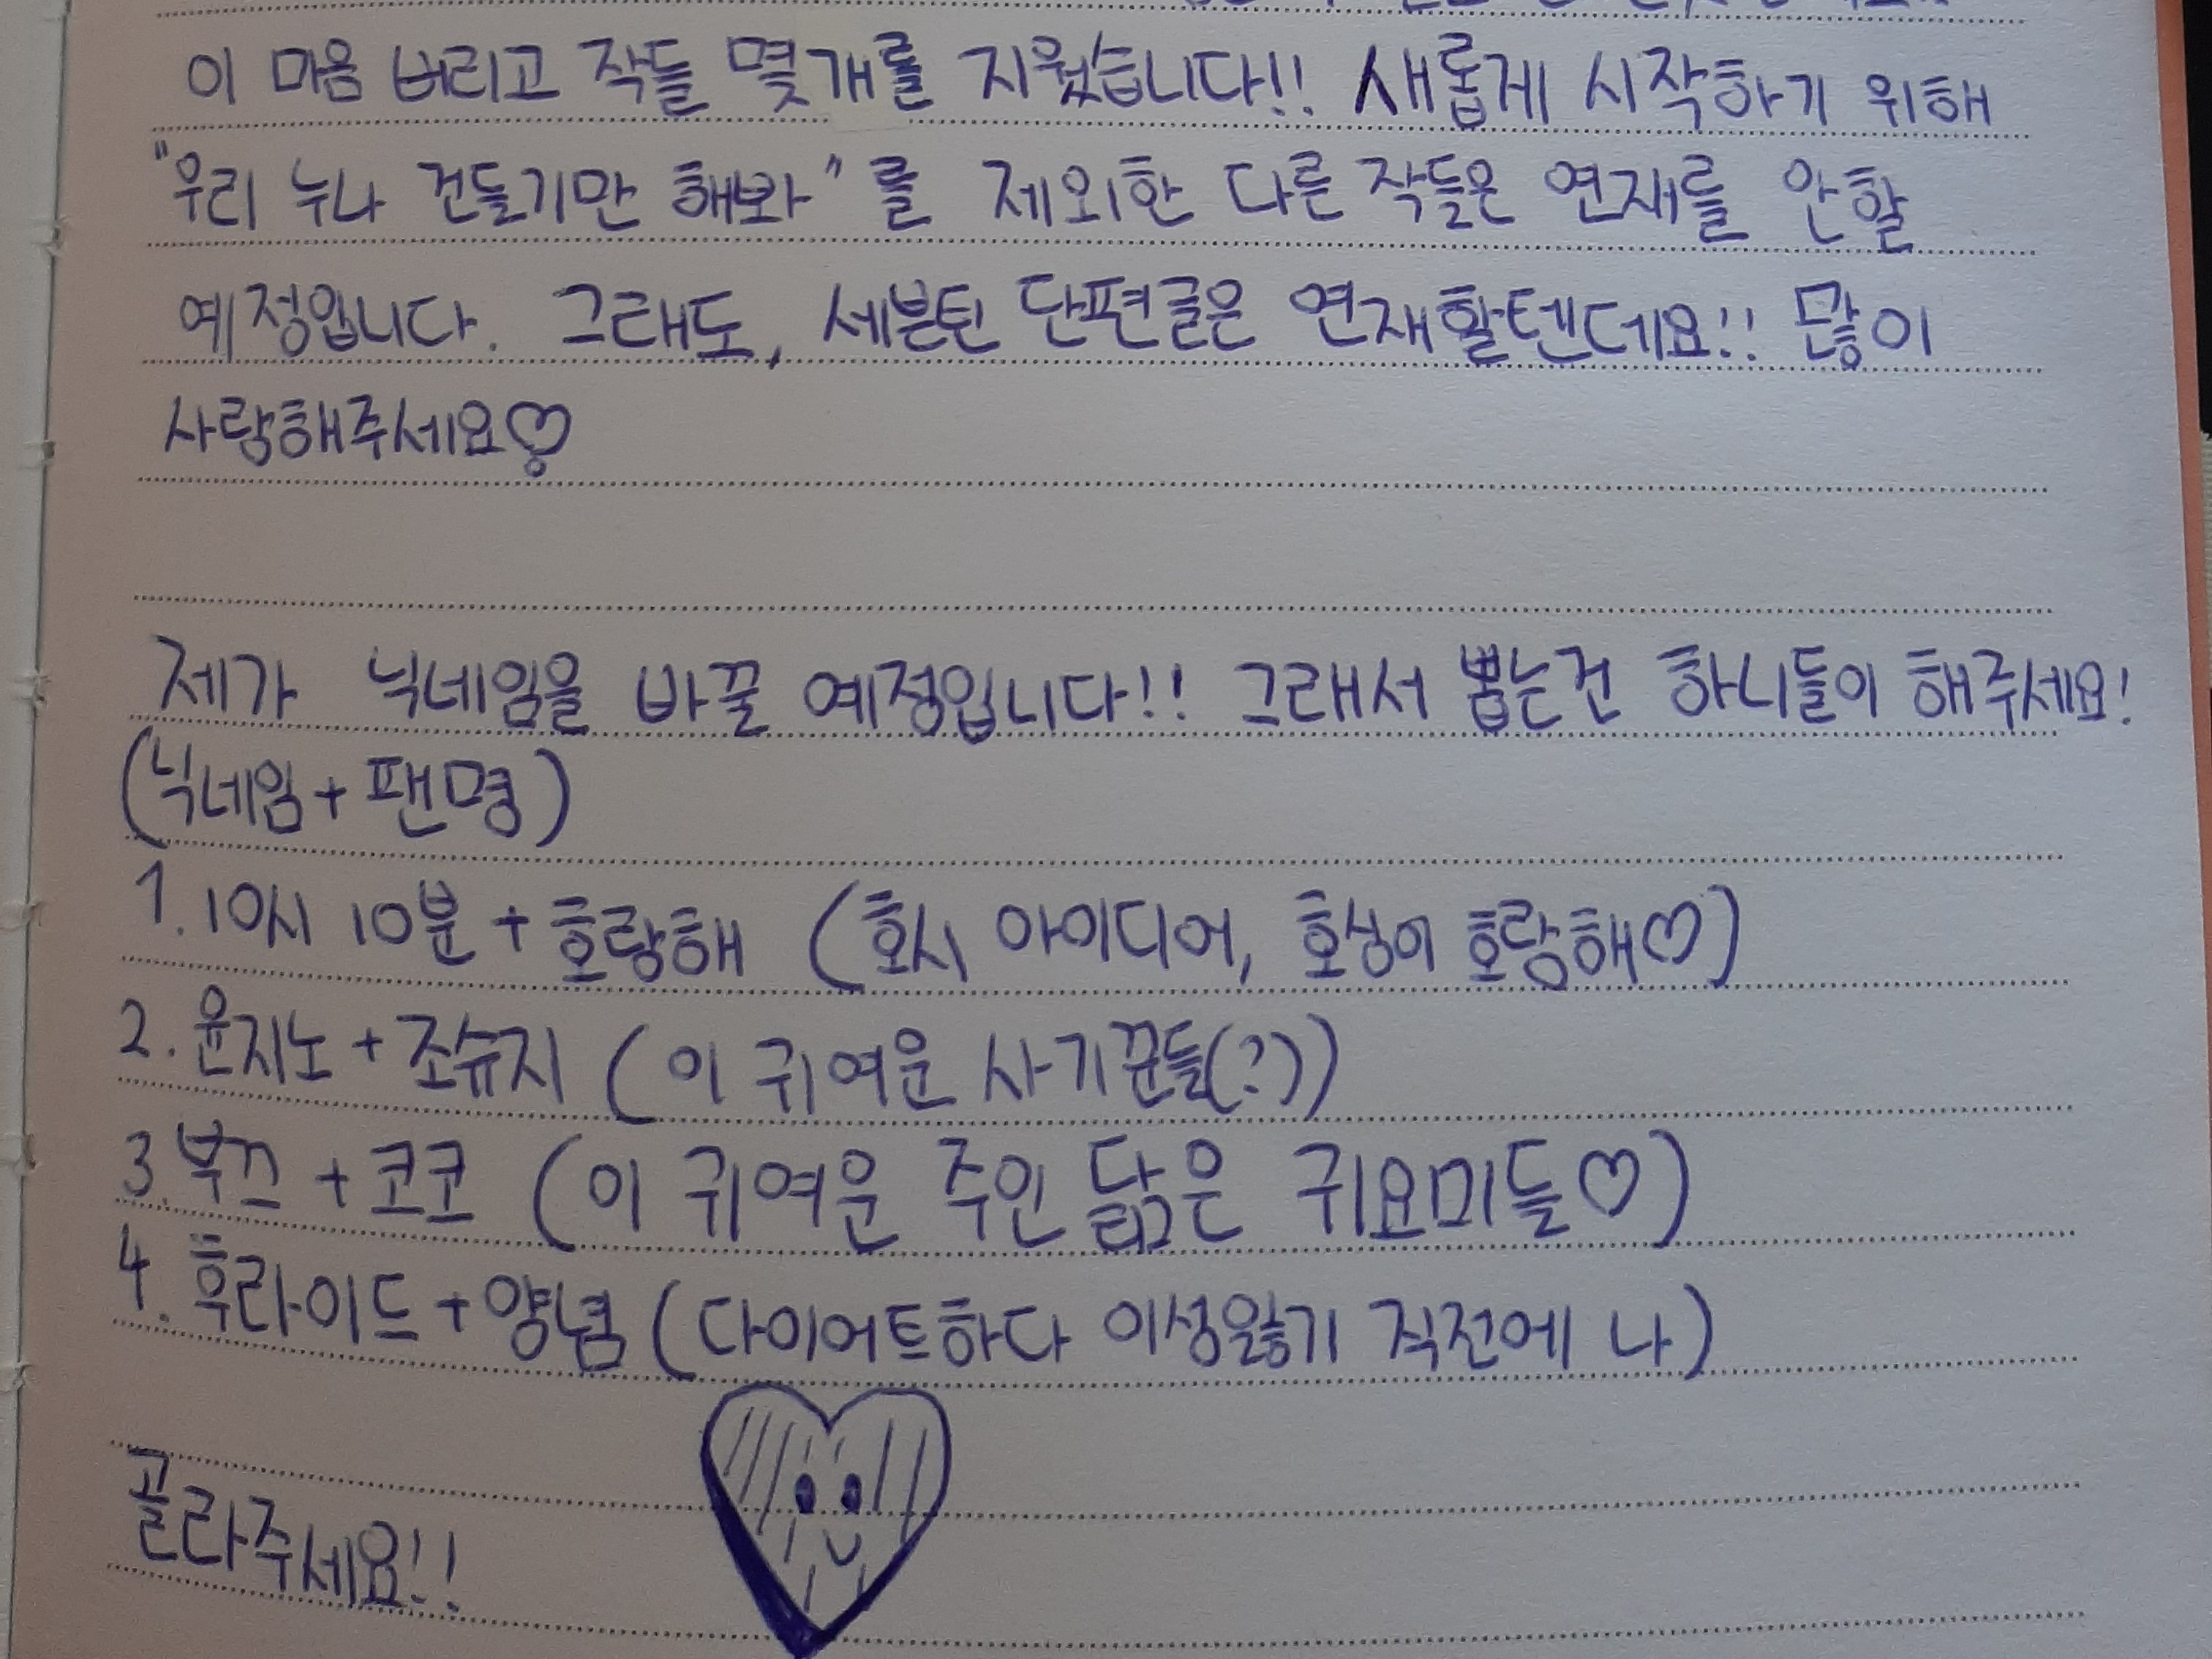 이 마음 버리고 작들 몇개를 지웠습니다!! 새롭게 시작하기 위해
"우리 누나 건들기만 해봐"를 제외한 다른 작들은 연재를 안할
예정입니다. 그래도, 세븐틴 단편글은 연재할텐데요!! 많이
사랑해주세요♡
제가 닉네임을 바꿀 예정입니다!! 그래서 뽑는건 하니들이 해주세요!
(닉네임+팬명)
1. 10시 10분 + 호랑해 (호시 아이디어, 호싱이 호랑해♡)
2. 윤지노 + 조슈지 (이 귀여운 사기꾼들(?))
3. 부끄 + 코코 (이 귀여운 주인 닮은 귀요미들♡)
4. 후라이드 + 양념 (다이어트하다 이성잃기 직전에 나)
골라주세요!!